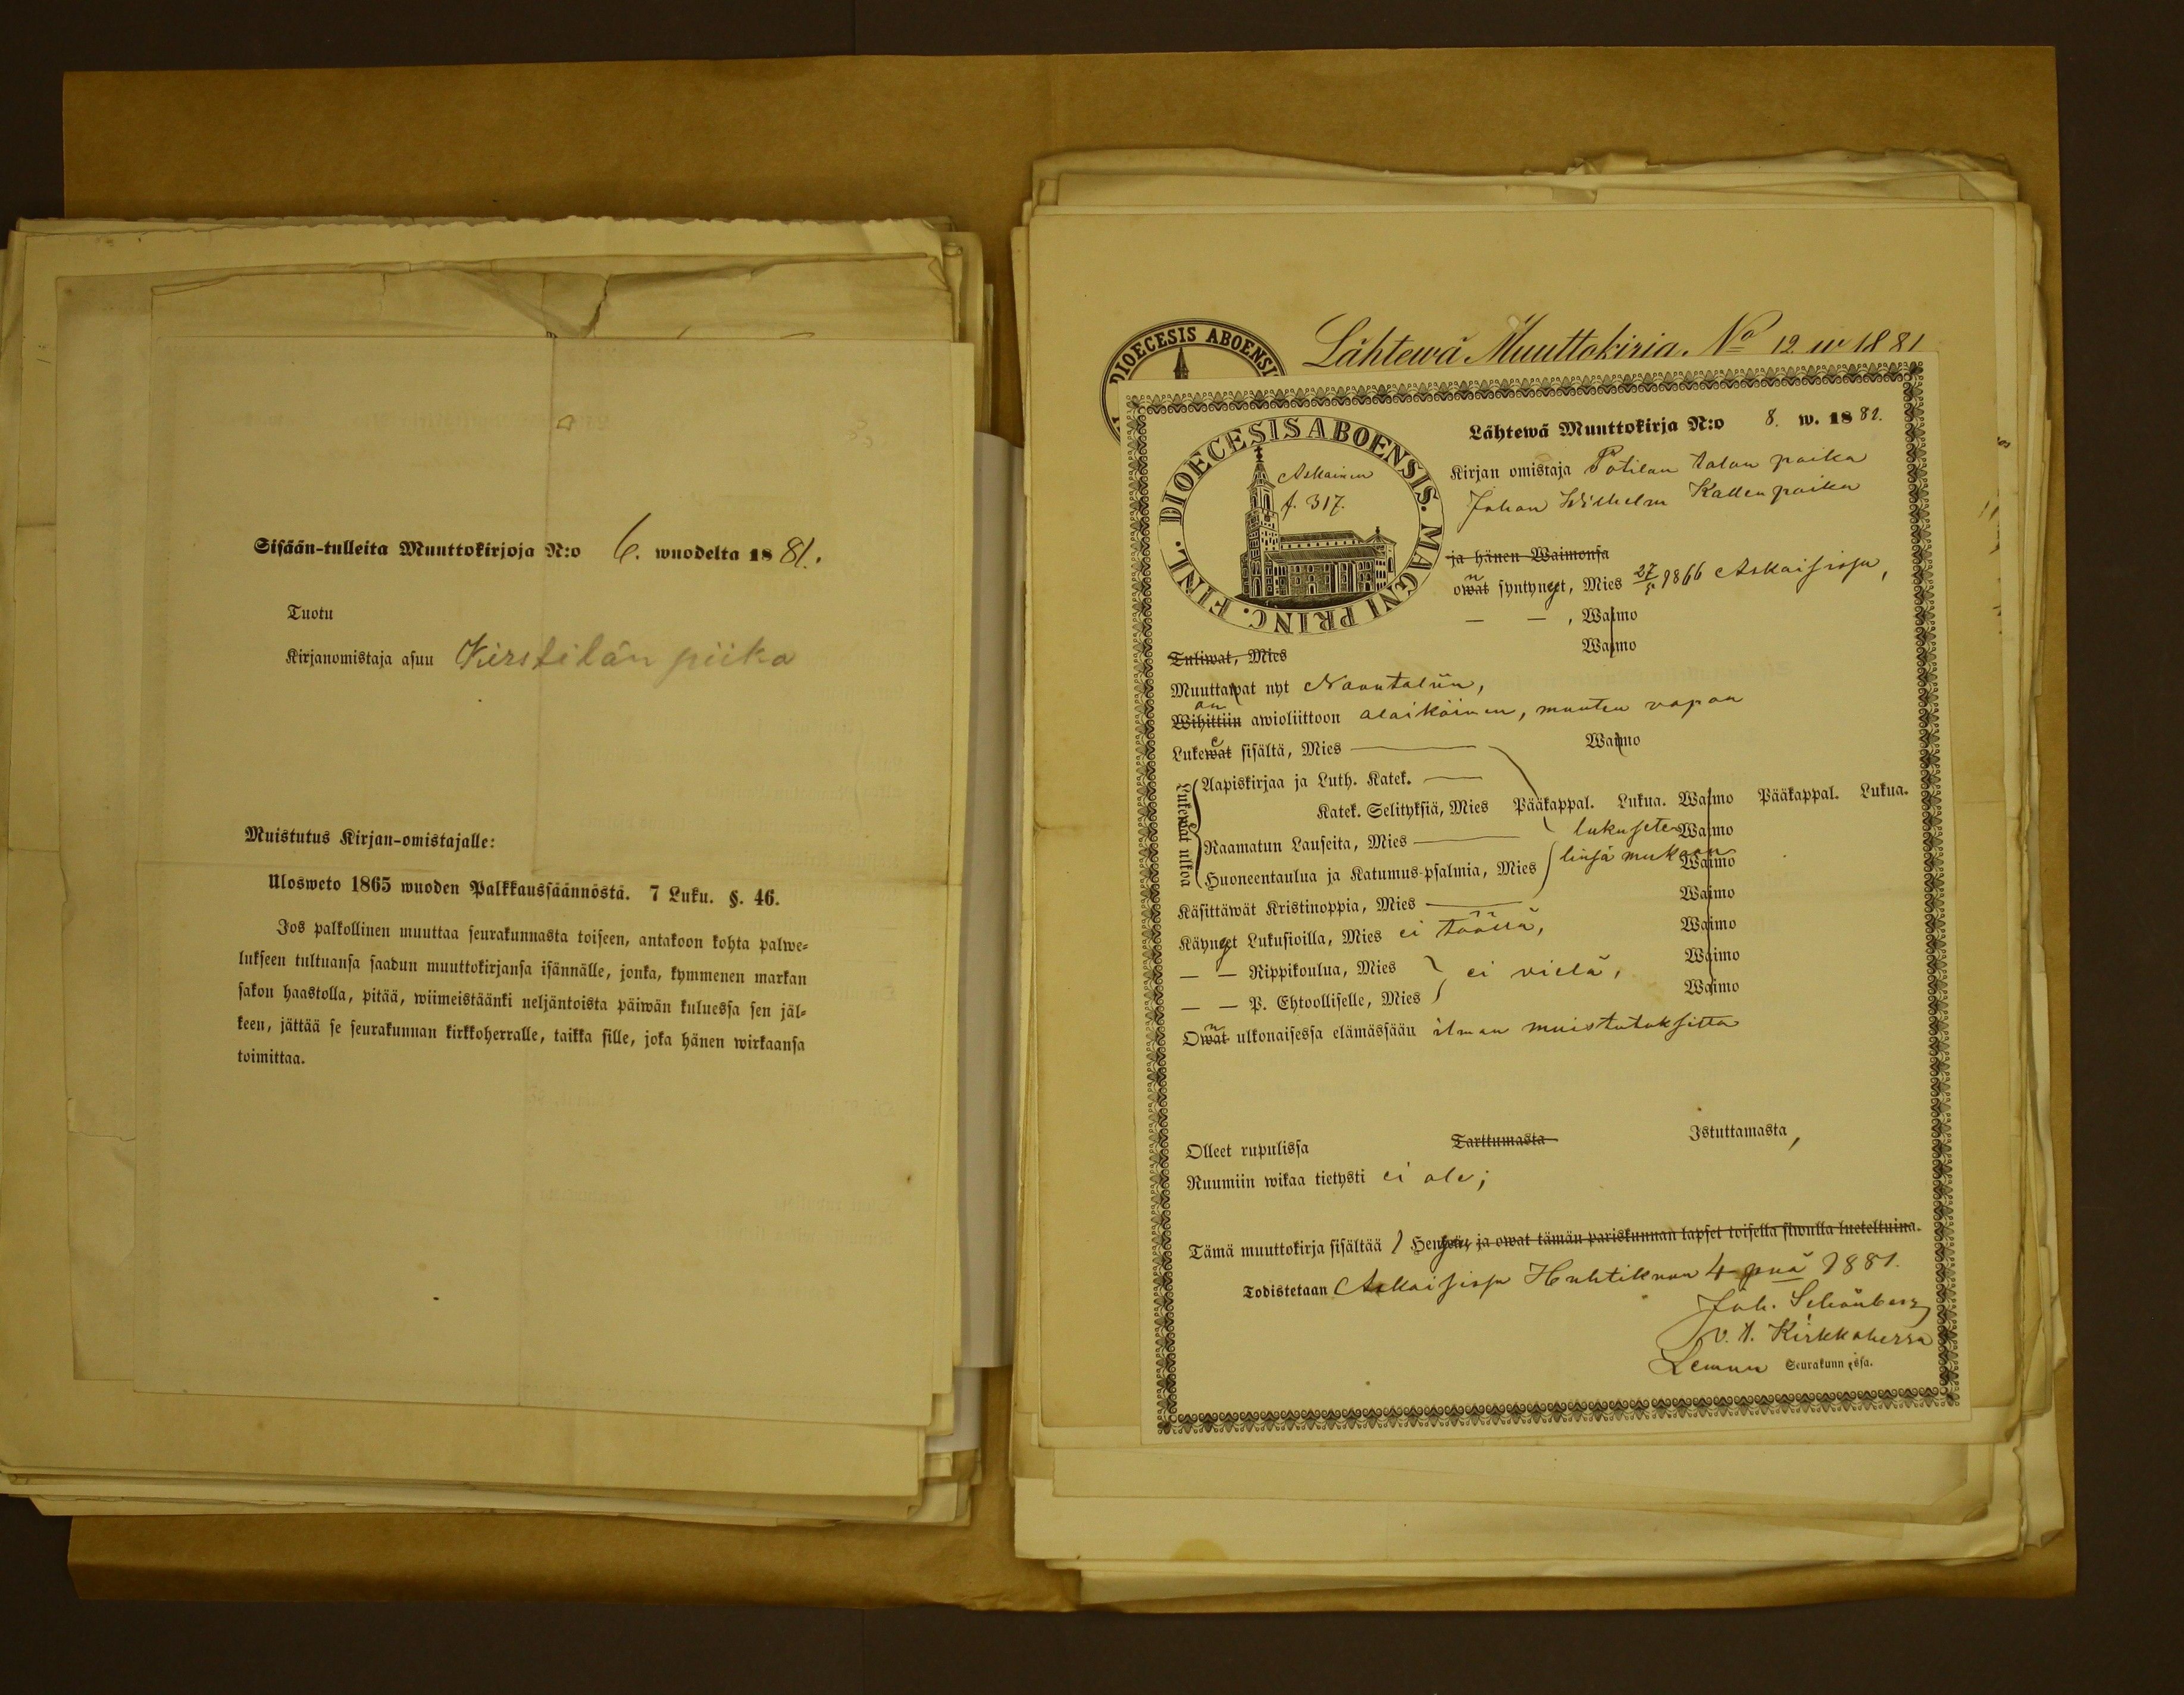 Sisään-tulleita Muuttokirjoja N:o 6. wuodelta 1881.
Tuotu
Kirjanomistaja asuu Kirstilän piika
Muistutus Kirjan-omistajalle:
Ulosweto 1865 wuoden Palkkaussäännöstä. 7 Luku. §. 46.
Jos palkollinen muuttaa seurakunnasta toiseen, antakoon kohta palwe=
lukseen tultuansa saadun muuttokirjansa isännälle, jonka, kymmenen markan
sakon haastolla, pitää, wiimeistäänki neljäntoista päiwän kuluessa sen jäl=
keen, jättää se seurakunnan kirkkoherralle, taikka sille, joka hänen wirkaansa
toimittaa.
DIOECESIS ABOENSI
Lähtewä Muuttokirja. No 12 w 1881
FINL. DIOECESIS ABOENSIS. MAGNI PRINC.
Askainen
f. 317.
Lähtewä Muuttokirja N:o 8. w. 1881.
Kirjan omistaja Potilan talon poika
Johan Wilhelm Kallenpoika
ja hänen Waimonsa
owat n syntynyt, Mies 27/5 1866 Askaisissa,
— — , Waimo
Tuliwat, Mies Waimo
Muuttawat nyt Naantaliin,
Wihittiin on awioliittoon alaikäinen, muuten vapaa
Lukewat e sisältä, Mies — Waimo
Lukewat ulkoa
Aapiskirjaa ja Luth. Katek. —
Katek. Selityksiä, Mies Pääkappal. Lukua. Waimo Pääkappal. Lukua.
Raamatun Lauseita, Mies — lukusete Waimo
Huoneentaulua ja Katumus-psalmia, Mies linsä mukaan Waimo
Käsittäwät Kristinoppia, Mies — Waimo
Käynyt Lukusioilla, Mies ei täällä, Waimo
— — Rippikoulua, Mies ei vielä, Waimo
— — P. Ehtoolliselle, Mies Waimo
Owat n ulkonaisessa elämässään ilman muistutuksitta
Olleet rupulissa Tarttumasta Istuttamasta,
Ruumiin wikaa tietysti ei ole;
Tämä muuttokirja sisältää 1 Henkeä, ja owat tämän pariskunnan lapset toisella siwulla lueteltuina.
Todistetaan Askaisissa Huhtikuun 4 pnä 1881.
Joh. Schönberg
v. t. Kirkkoherra
Lemun Seurakunnissa.